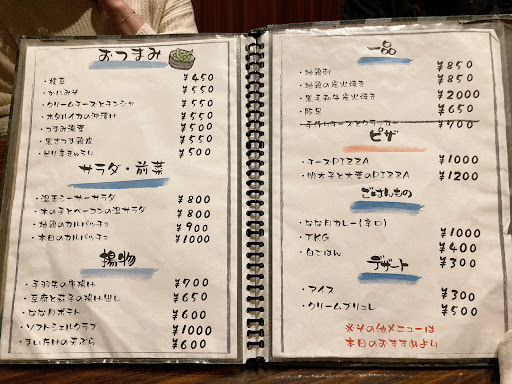 おつまみ
・枝豆 ¥450
・かにみそ ¥550
・クリームチーズとチャンジャ ¥550
・ホタルイカの沖漬け ¥550
・つまみ海苔 ¥500
・黒さつま鶏皮 ¥550
・ピリ辛きゅうり ¥500
サラダ・前菜
・温玉シーザーサラダ ¥800
・木の子とベーコンの温サラダ ¥800
・地鶏のカルパッチョ ¥900
・本日のカルパッチョ ¥1000
揚物
・手羽先の唐揚げ ¥700
・豆腐と茄子の揚げ出し ¥650
・なな月ポテト ¥600
・ソフトシェルクラブ ¥1000
・まいたけの天ぷら ¥600
一品
・地鶏刺 ¥850
・地鶏の炭火焼き ¥850
・黒毛和牛炭火焼き ¥2000
・豚足 ¥650
・手作りチーズとクラッカー ¥700
ピザ
・チーズPIZZA ¥1000
・明太子と大葉のPIZZA ¥1200
ごはんもの
・なな月カレー(辛口) ¥1000
・TKG ¥400
・白ごはん ¥300
デザート
・アイス ¥300
・クリームブリュレ ¥500
※その他メニューは
本日のおすすめより